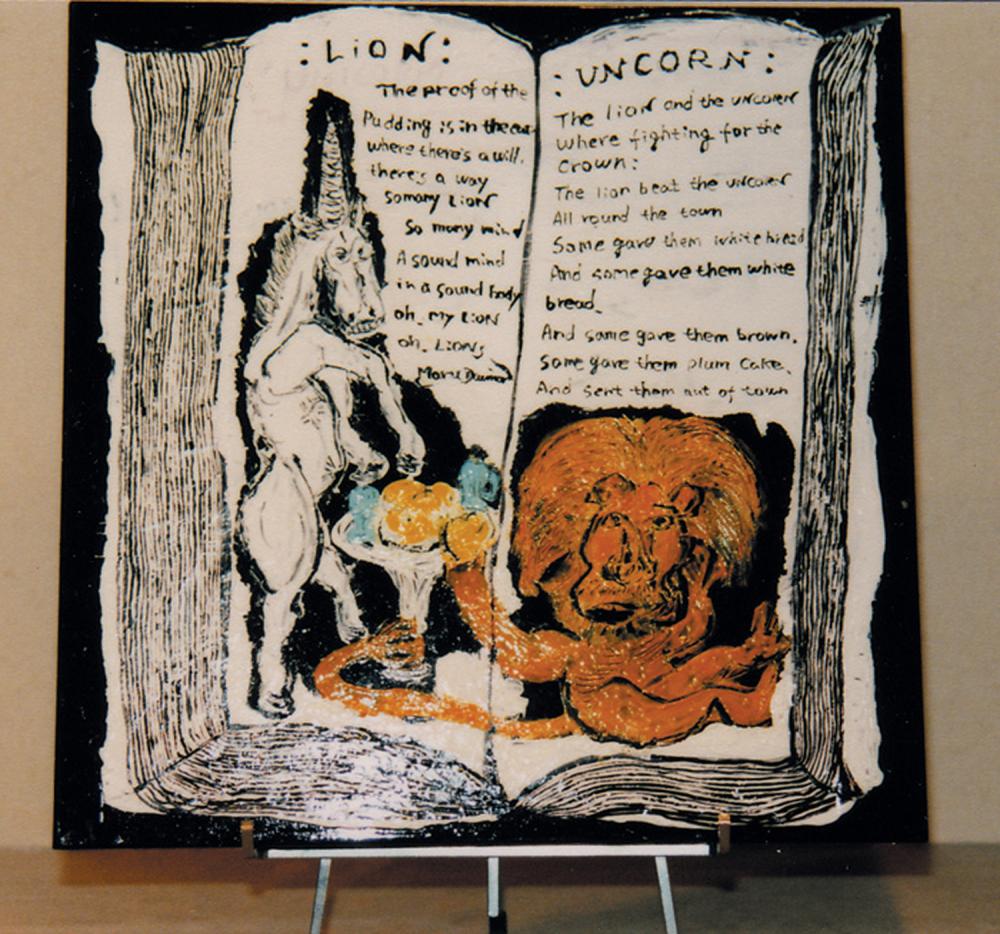 : LiON :
The proof of the
Pudding is in the eat
where there's a will,
there's a way
somany LiON
So many mind
A sound mind
in a sound body
oh, my LiON
oh, LiONs
: UNCORN :
The lion and the uncorn
where fighting for the
Crown:
The lion beat the uncorn
All round the town
Some gave them white bread
And some gave them white
bread.
And some gave them brown,
Some gave them plum cake,
And sent them out of town